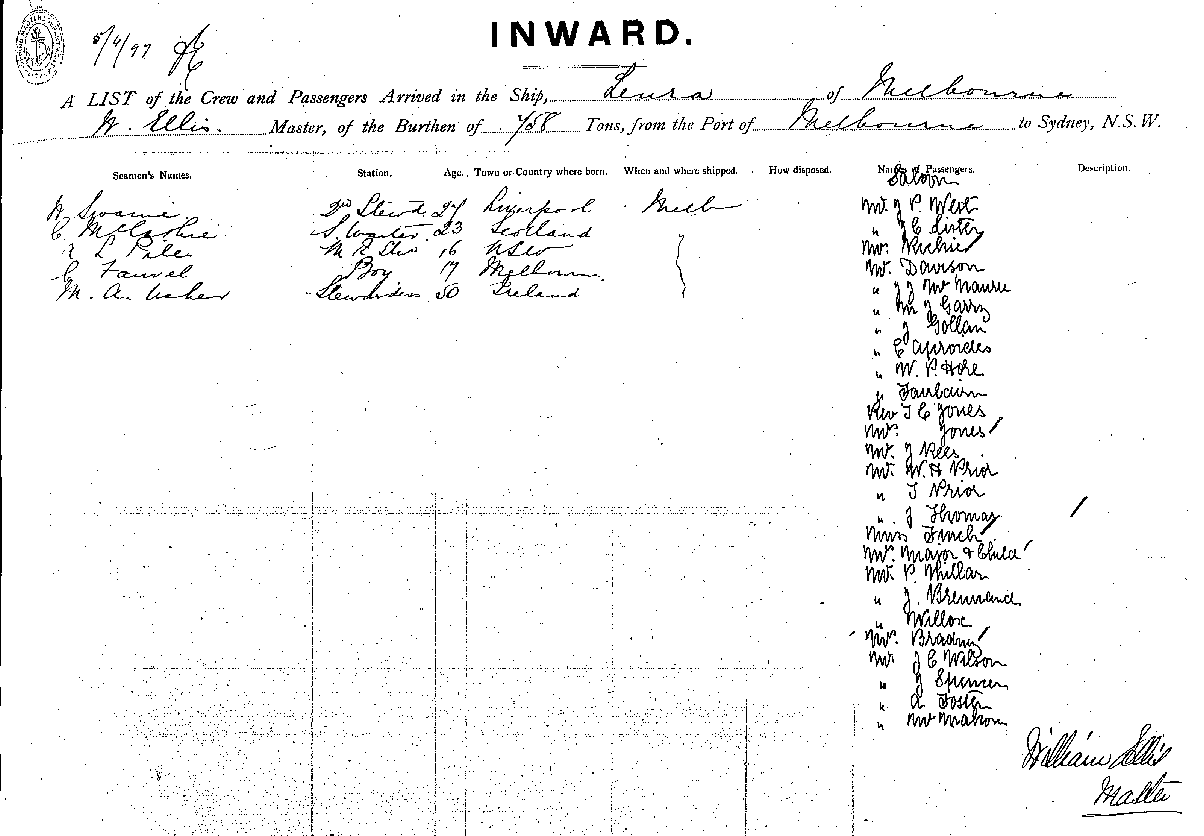 INWARD.
5/4/97
A LIST of the Crew and Passengers Arrived in the Ship, Leura of Melbourne
W. Ellis. Master, of the Burthen of 758 Tons, from the Port of Melbourne to Sydney, N.S.W.
Seamen's Names. Station. Age. Town or Country where born. When and where shipped. How disposed. Names of Passengers. Description.
Saloon
2nd Stewd 27 Liverpool Melb
S. Waiter 23 Scotland
16 NSW
Boy 17 Melbourne
M. A. Usher Stewardess 50 Ireland
Mr J P West
" J C Lister
Mrs Richie
Mr. Davison
" J J
" J Garry
" J Gollan
" C
" W. P. Hore
" Fairbairn
Rev T C Jones
Mrs Jones
Mr. J Rees
Mr. W. H Prior
" T Prior
" J Thomas
Miss Finch
Mrs Major & Child
Mr. P Millar
" J. Brennand
" Willox
Mrs. Bradny
Mr J C Wilson
" J Spencer
" A Foster
" McMahon
William Ellis
Master